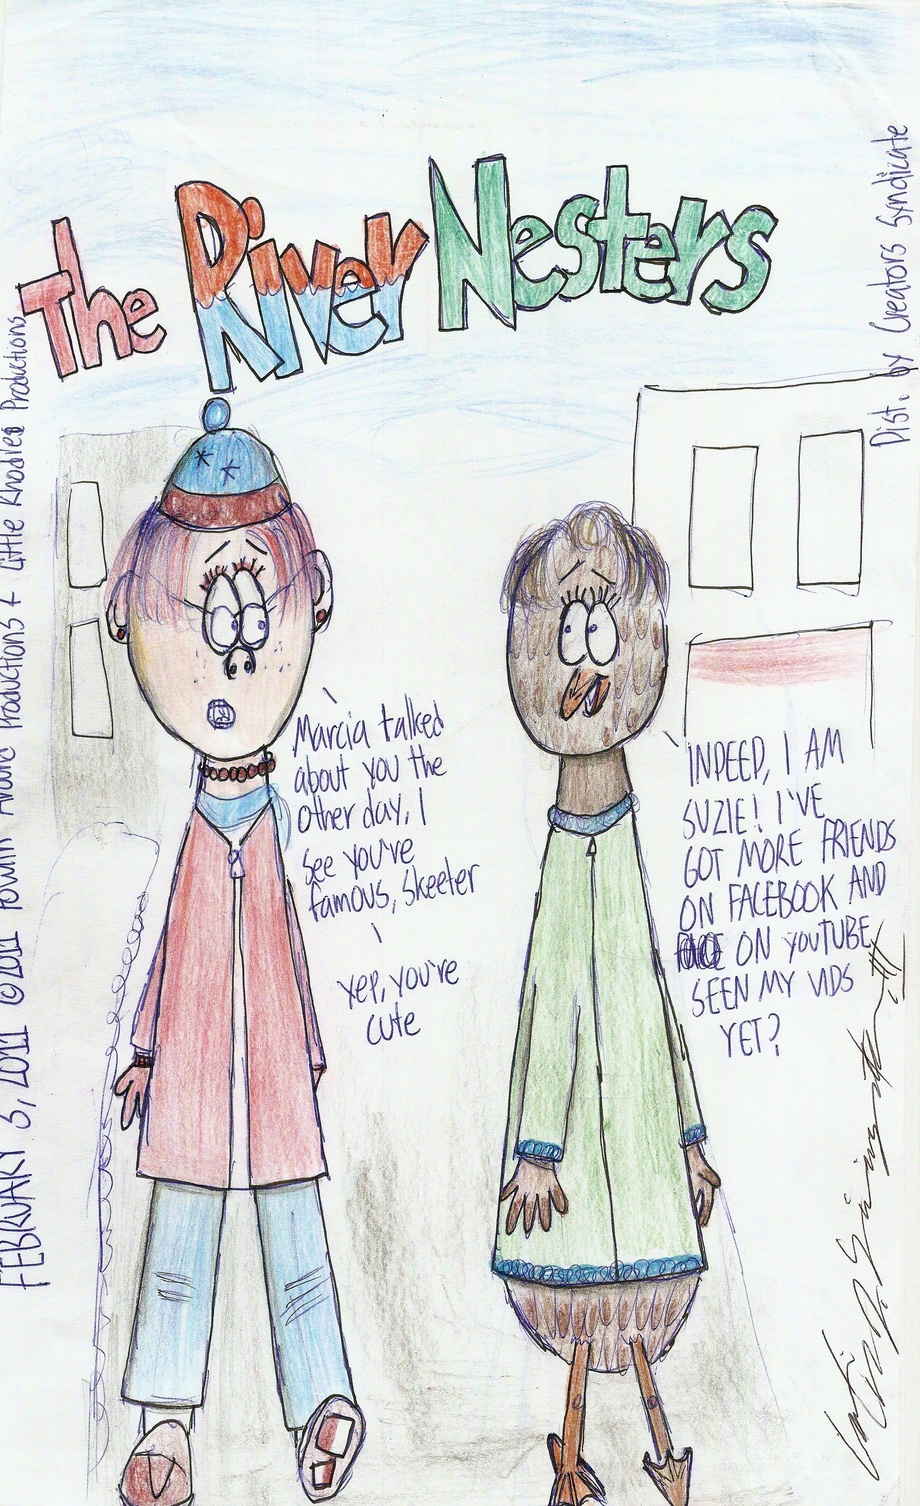 The River Nesters
Dist. by Creators Syndicate
FEBRUARY 3, 2011 ©2011 Productions + Little Rhodies Productions
Marcia talked
about you the
other day, I
see you're
famous, Skeeter
Yep, you're
cute
INDEED, I AM
SUZIE! I'VE
GOT MORE FRIENDS
ON FACEBOOK AND
ON YOUTUBE
SEEN MY VIDS
YET?